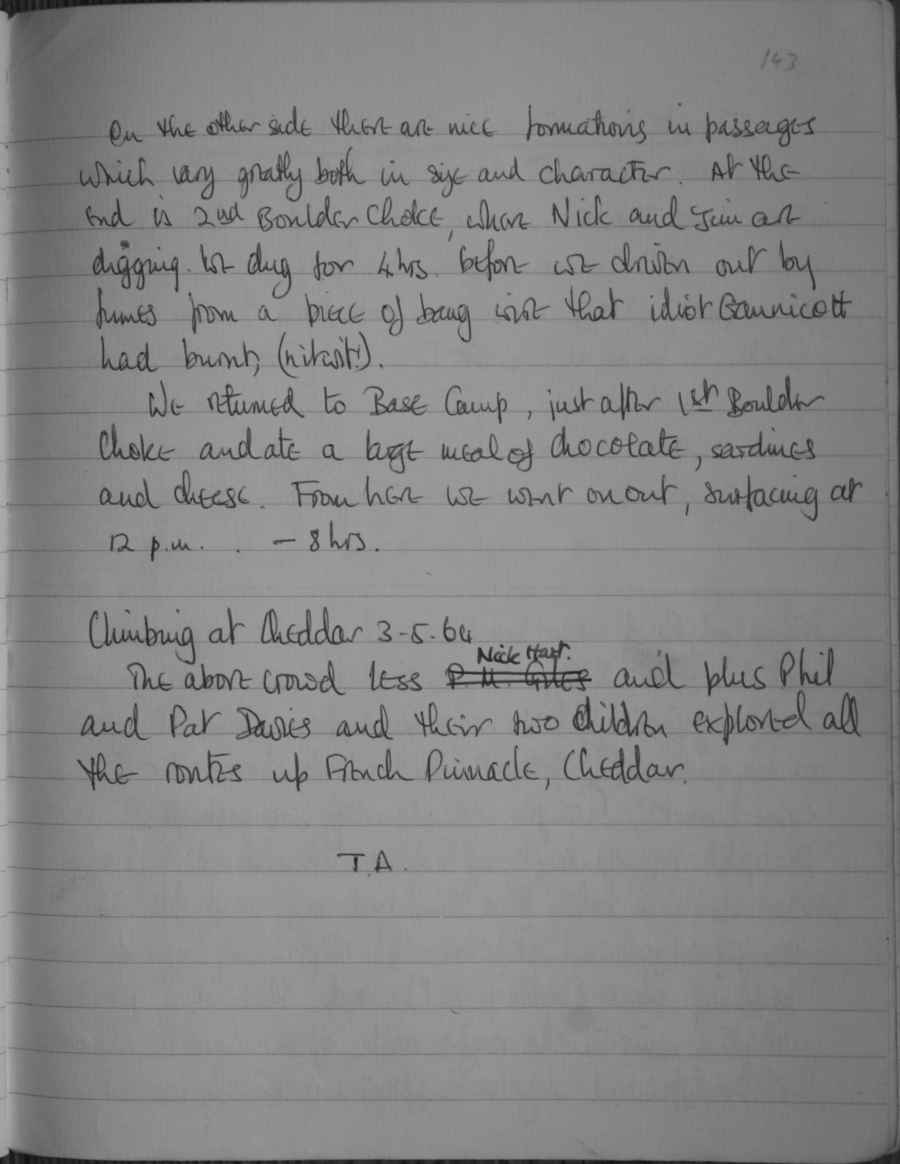 143
On the other side there are nice formations in passages
which vary greatly both in size and character. At the
end is 2nd Boulder Choke, where Nick and Jim are
digging. We dug for 4 hrs. before we driven out by
fumes from a piece of bang wire that idiot Gannicott
had burnt,
We returned to Base Camp, just after 1st Boulder
Choke and ate a large meal of chocolate, sardines
and cheese. From here we went on out, surfacing at
12 p.m. . — 8 hrs.
Climbing at Cheddar 3-5-64
Nick Hart.
The above crowd less P. M. Giles and plus Phil
and Pat Davies and their two children explored all
the routes up French Pinnacle, Cheddar.
T.A.